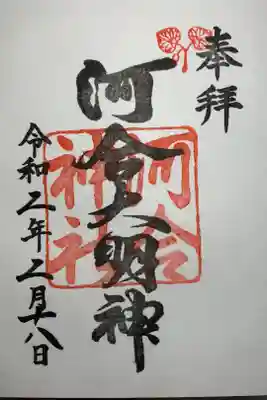 奉拝
河合大明神
河合神社
令和二年二月十八日